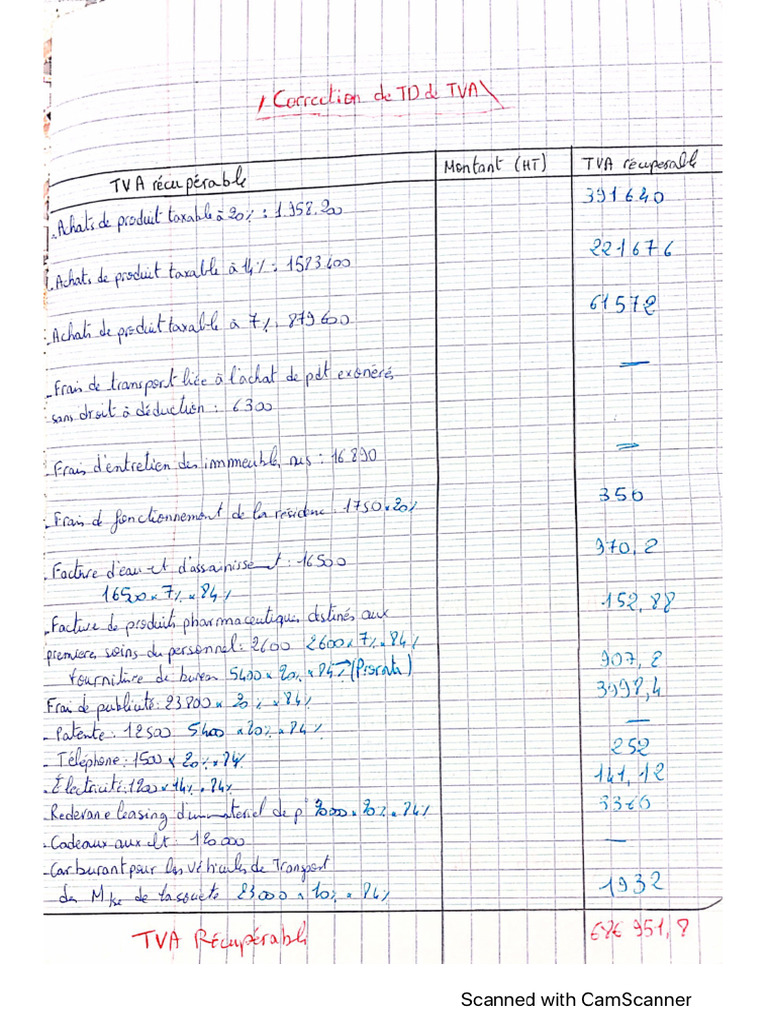 Correction de TD de TVA
TVA récupérable Montant (HT) TVA récuperable
- Achats de produit taxable à 20% : 1.958.200 391640
- Achats de produit taxable à 14% : 1583400 221676
- Achats de produit taxable à 7% : 879600 61572
- Frais de transport liée à l'achat de pdt exonérés —
sans droit à déduction : 6300
- Frais d'entretien des immeubles nus : 16890 —
- Frais de fonctionnement de la résidence : 1750 x 20% 350
- Facture d'eau et d'assainissement : 16500 970,2
16500 x 7% x 84%
- Facture de produits pharmaceutiques destinés aux 152,88
premiers soins du personnel : 2600 2600 x 7% x 84%
Fourniture de bureau 5400 x 20% x 84% → (Prorata) 907,2
Frai de publicité : 23800 x 20% x 84% 3998,4
- Patente : 12500 5400 x 20% x 84% —
- Téléphone : 1500 x 20% x 84% 252
- Électricité : 1200 x 14% x 84% 141,12
- Redevance leasing d'un matériel de p° 20000 x 20% x 84% 3360
- Cadeaux aux clt : 120000 —
- Carburant pour les véhicules de Transport
des Mse de la société 23000 x 10% x 84% 1932
TVA Récupérable 686 951,8
Scanned with CamScanner